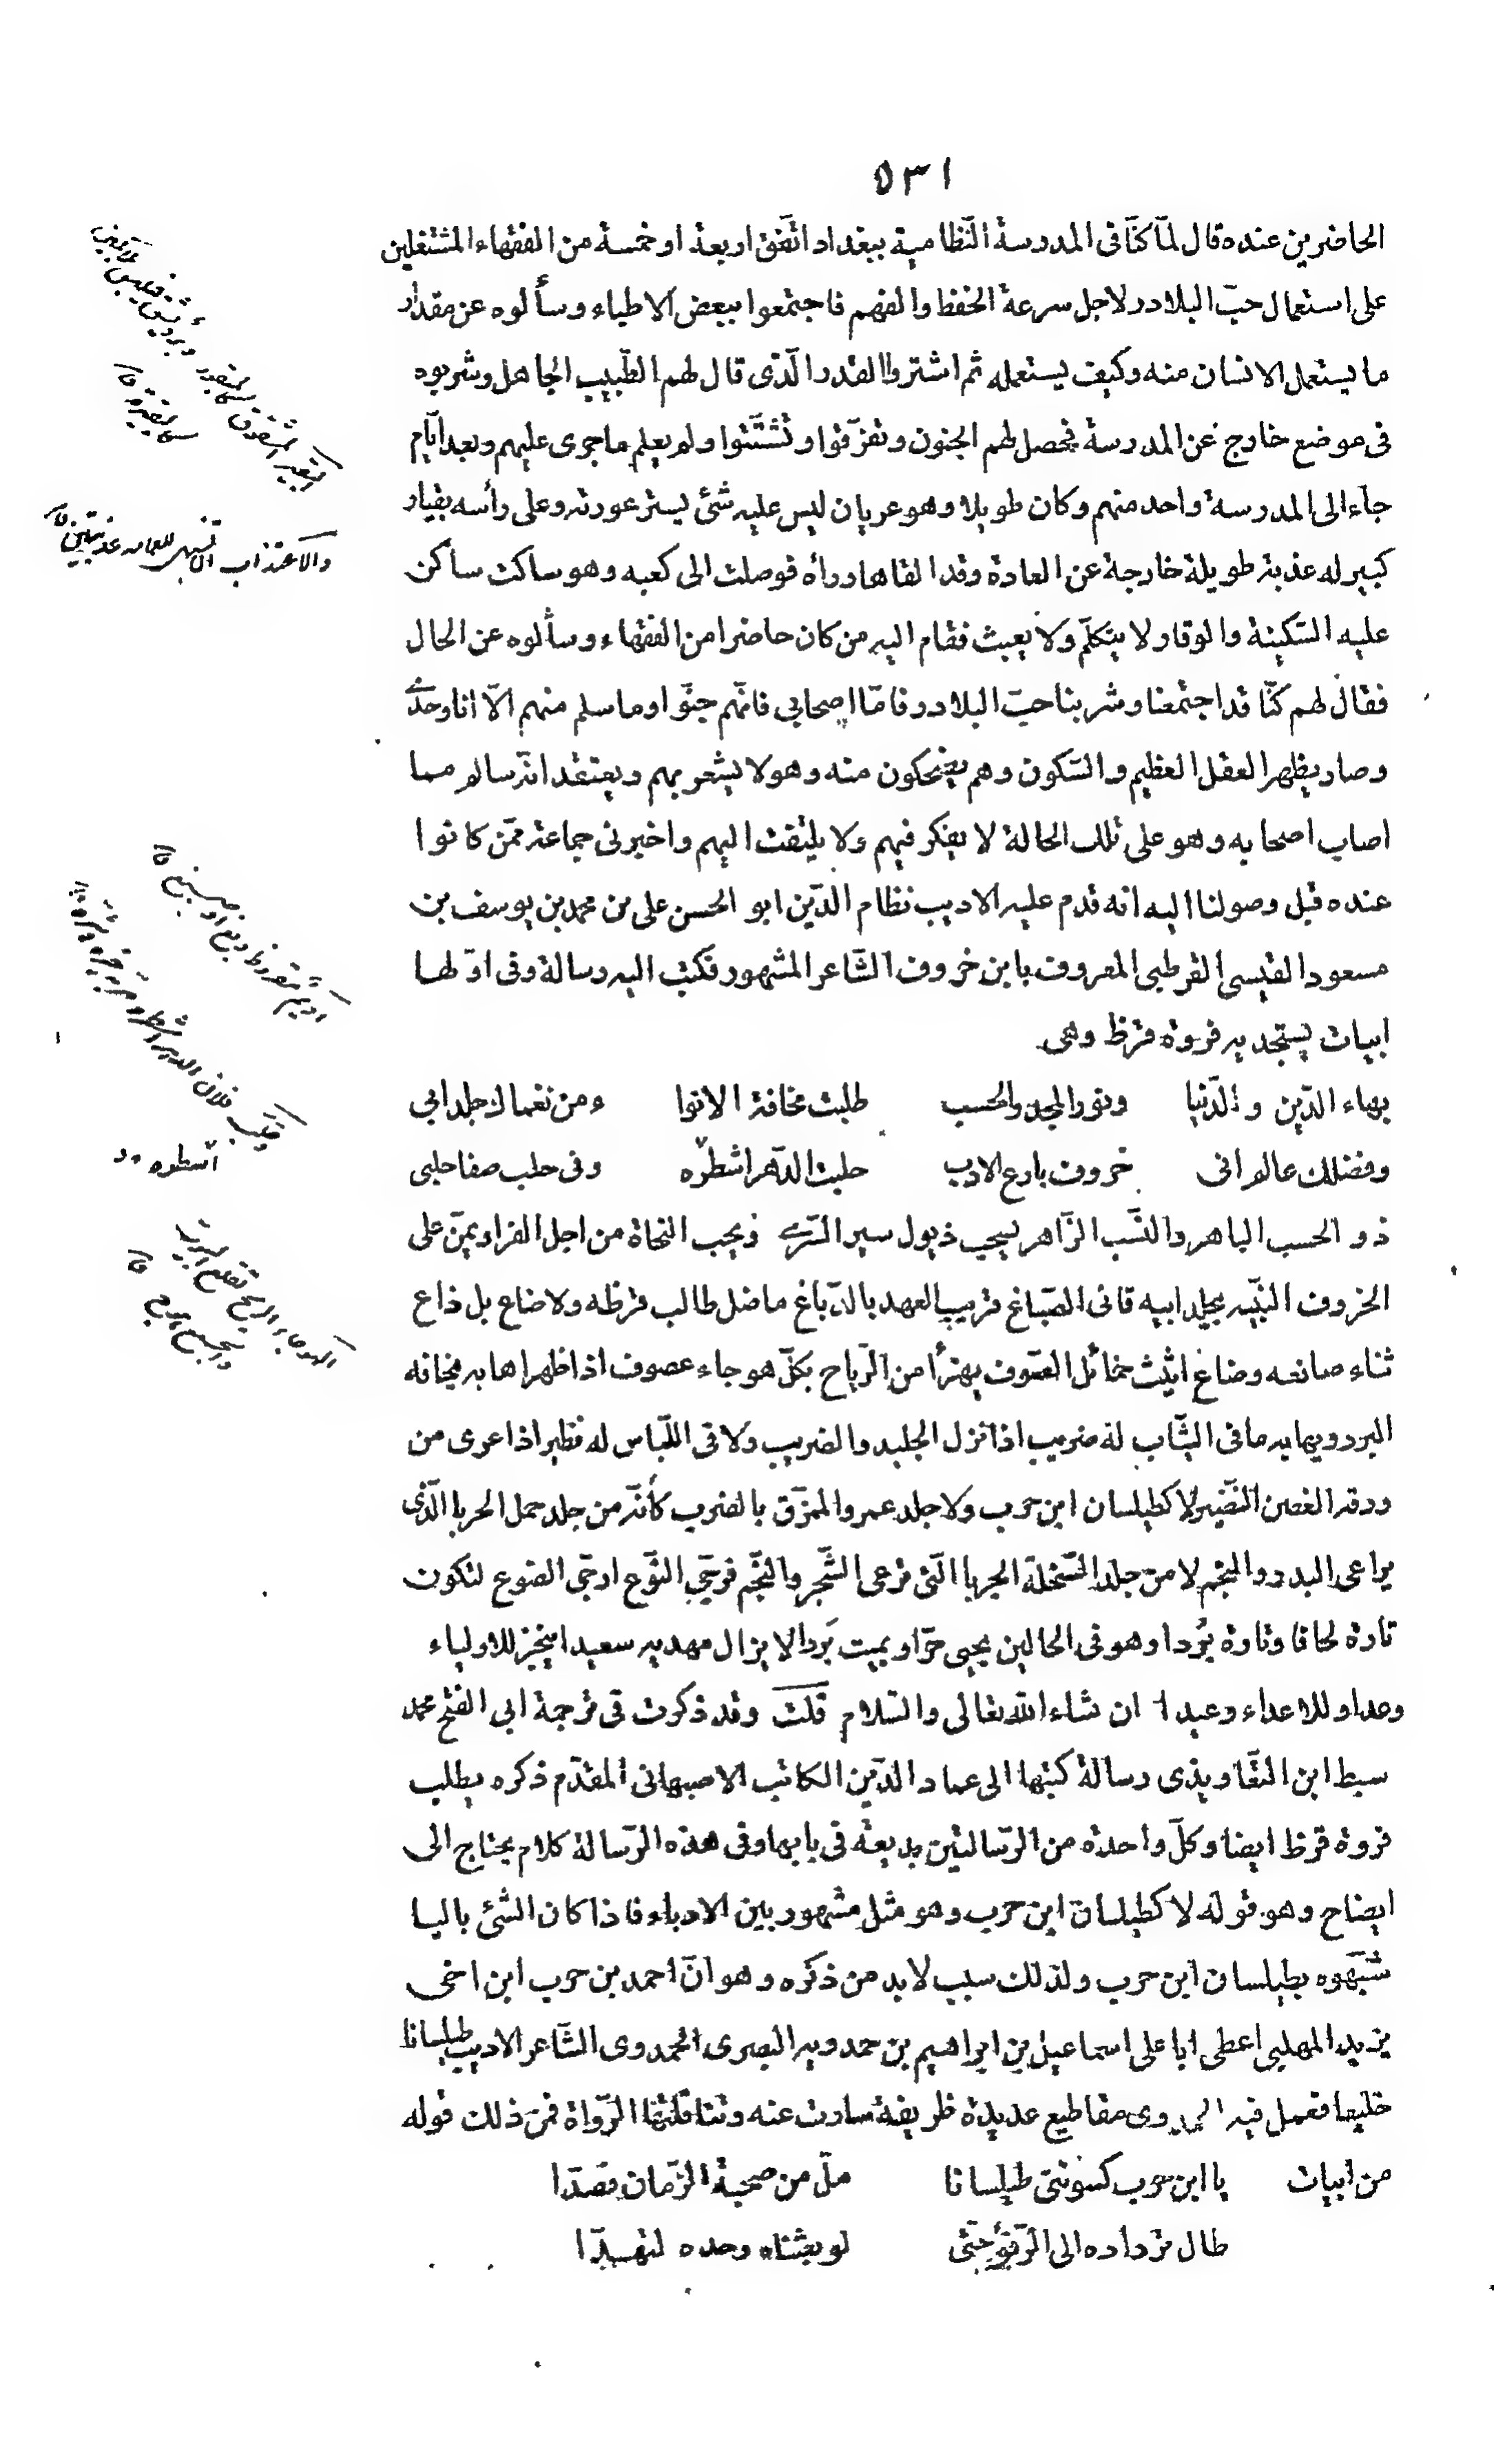 ٥٣١
الحاضرين عنده قال لمّا كنّا فى المدرسة النّظامية ببغداد اتّفق اربعة او خمسة من الفقهاء المشتغلين
على استعمال حبّ البلادر لاجل سرعة الحفظ والفهم فاجتمعوا ببعض الاطباء وسألوه عن مقدار
ما يستعمل الانسان منه وكيف يستعمله ثم اشتروا القدر الّذى قال لهم الطّبيب الجاهل وشربوه
فى موضع خارج عن المدرسة فحصل لهم الجنون وتفرّقوا وتشتّتوا ولم يعلم ما جرى عليهم وبعد ايّام
جآء الى المدرسة واحد منهم وكان طويلا وهو عريان ليس عليه شئ يستر عورته وعلى رأسه بقيار
كبير له عذبة طويلة خارجة عن العادة وقد القاها وراه فوصلت الى كعبه وهو ساكت ساكن
عليه السّكينة والوقار لا يتكلّم ولا يعبث فقام اليه من كان حاضرا من الفقهاء وسألوه عن الحال
فقال لهم كنّا قد اجتمعنا وشربنا حبّ البلادر فامّا اصحابى فانّهم جنّوا وما سلم منهم الّا انا وحدى
وصار يظهر العقل العظيم والسّكون وهم يضحكون منه وهو لا يشعر بهم ويعتقد انّه سالم مما
اصاب اصحابه وهو على تلك الحالة لا يفكر فيهم ولا يلتفت اليهم واخبرنى جماعة ممّن كانوا
عنده قبل وصولنا اليه انه قدم عليه الاديب نظام الدّين ابو الحسن على بن محمد بن يوسف بن
مسعود القيسى القرطبى المعروف بابن خروف الشّاعر المشهور فكتب اليه رسالة وفى اوّلها
ابيات يستجديه فروة قرظ وهى
بهاء الدّين والدّنيا ونور المجد والحسب طلبت مخافة الانوا ء من نعماك جلد ابى
وفضلك عالم انى خروف بارع الادب حلبت الدّهر اشطره وفى حلب صفا حلبى
ذو الحسب الباهر والنّسب الزّاهر يسحب ذيول سير السّرى ويحب النحاة من اجل الفرا ويمنّ على
الخروف النّبيه بجلد ابيه قانى الصّباغ قريب العهد بالدّباغ ما ضل طالب قرظه ولا ضاع بل ذاع
ثناء صانعه وضاغ اثيث خمائل الصّوف يهزأ من الرّياح بكلّ هوجاء عصوف اذا ظهر اهابه يخافه
البرد ويهابه ما فى الثّياب له ضريب اذا نزل الجليد والضريب ولا فى اللّباس له نظير اذا عرى من
ورقه الغصن النّضير لا كطيلسان ابن حرب ولا جلد عمرو الممزّق بالضرب كأنّه من جلد جمل الحربا الّذى
يراعى البدر والنجم لا من جلد السّخلة الجربا الّتى ترعى الشّجر والنّجم فرجىّ النّوع ارجىّ الضوع لتكون
تارة لحافا وتارة بُردا وهو فى الحالين يحيى حرّا ويميت بَردا لا يزال مهديه سعيدا ينجز للاولياء
وعدا وللاعداء وعيدا ان شاء الله تعالى والسّلام قلت وقد ذكرت فى ترجمة ابى الفتح محمد
سبط ابن التّعاويذى رسالة كتبها الى عماد الدّين الكاتب الاصبهانى المقدّم ذكره يطلب
فروة قرظ ايضا وكلّ واحدة من الرّسالتين بديعة فى بابها وفى هذه الرّسالة كلام يحتاج الى
ايضاح وهو قوله لا كطيلسان ابن حرب وهو مثل مشهور بين الادباء فاذا كان الشئ باليا
شبّهوه بطيلسان ابن حرب ولذلك سبب لا بد من ذكره وهو انّ احمد بن حرب ابن اخى
يزيد المهلبى اعطى ابا على اسماعيل بن ابراهيم بن حمدويه البصرى الحمدوى الشّاعر الاديب طيلسانا
خليعا فعمل فيه الحمدوى مقاطيع عديدة ظريفة سارت عنه وتناقلتها الرّواة فمن ذلك قوله
من ابيات يا ابن حرب كسوتنى طيلسانا ملّ من صحبة الزّمان وصدّا
طال ترداده الى الرّفو حتّى لو بعثناه وحده لتهدّا